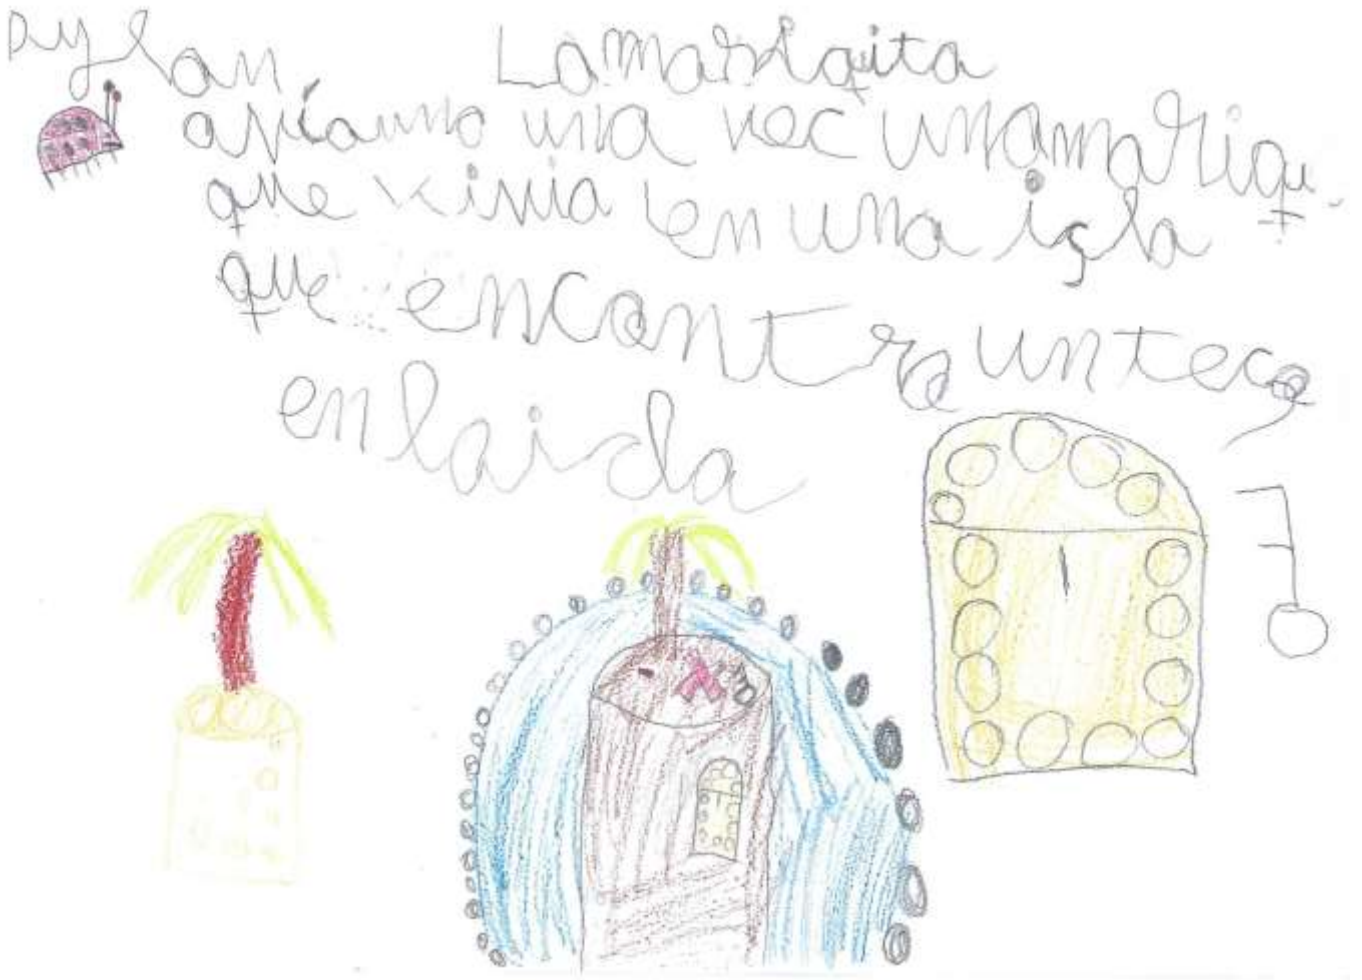 Dylan
La mariqita
avia uno una vec unamariqu
que vivia en una isla
que encontro un teco
en laisla